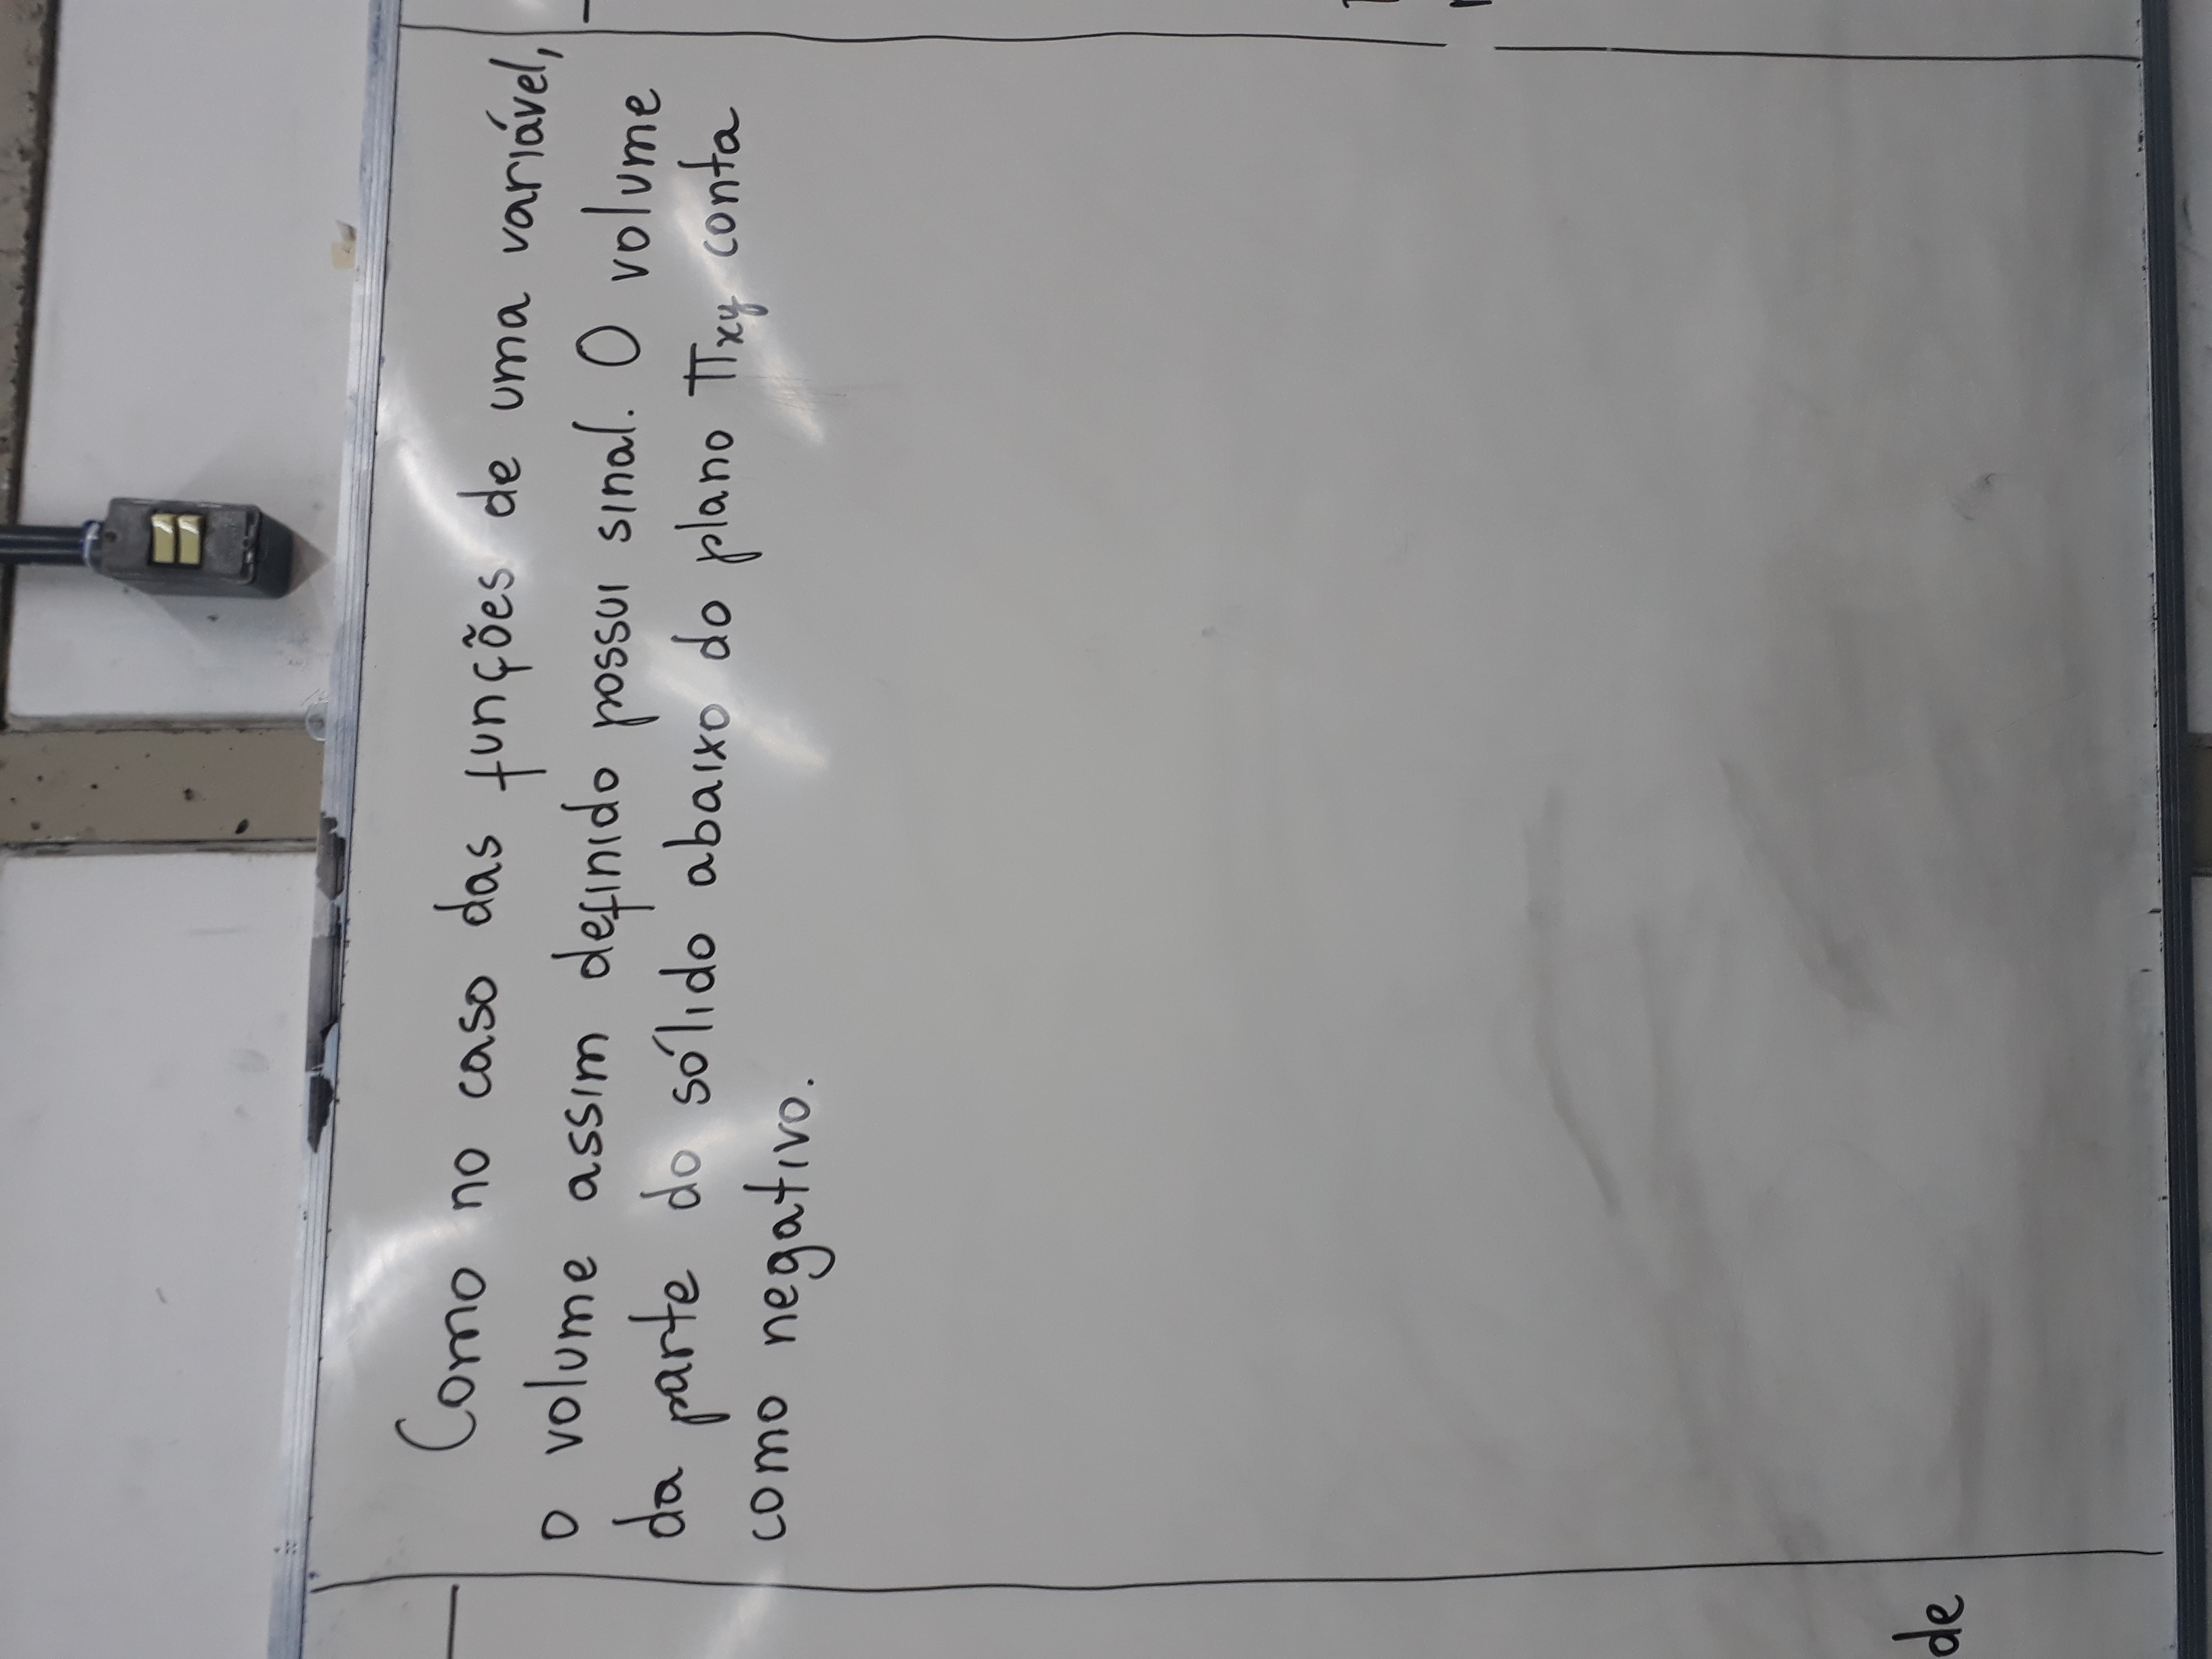 Como no caso das funções de uma variável,
o volume assim definido possui sinal. O volume
da parte do sólido abaixo do plano πxy conta
como negativo.
de